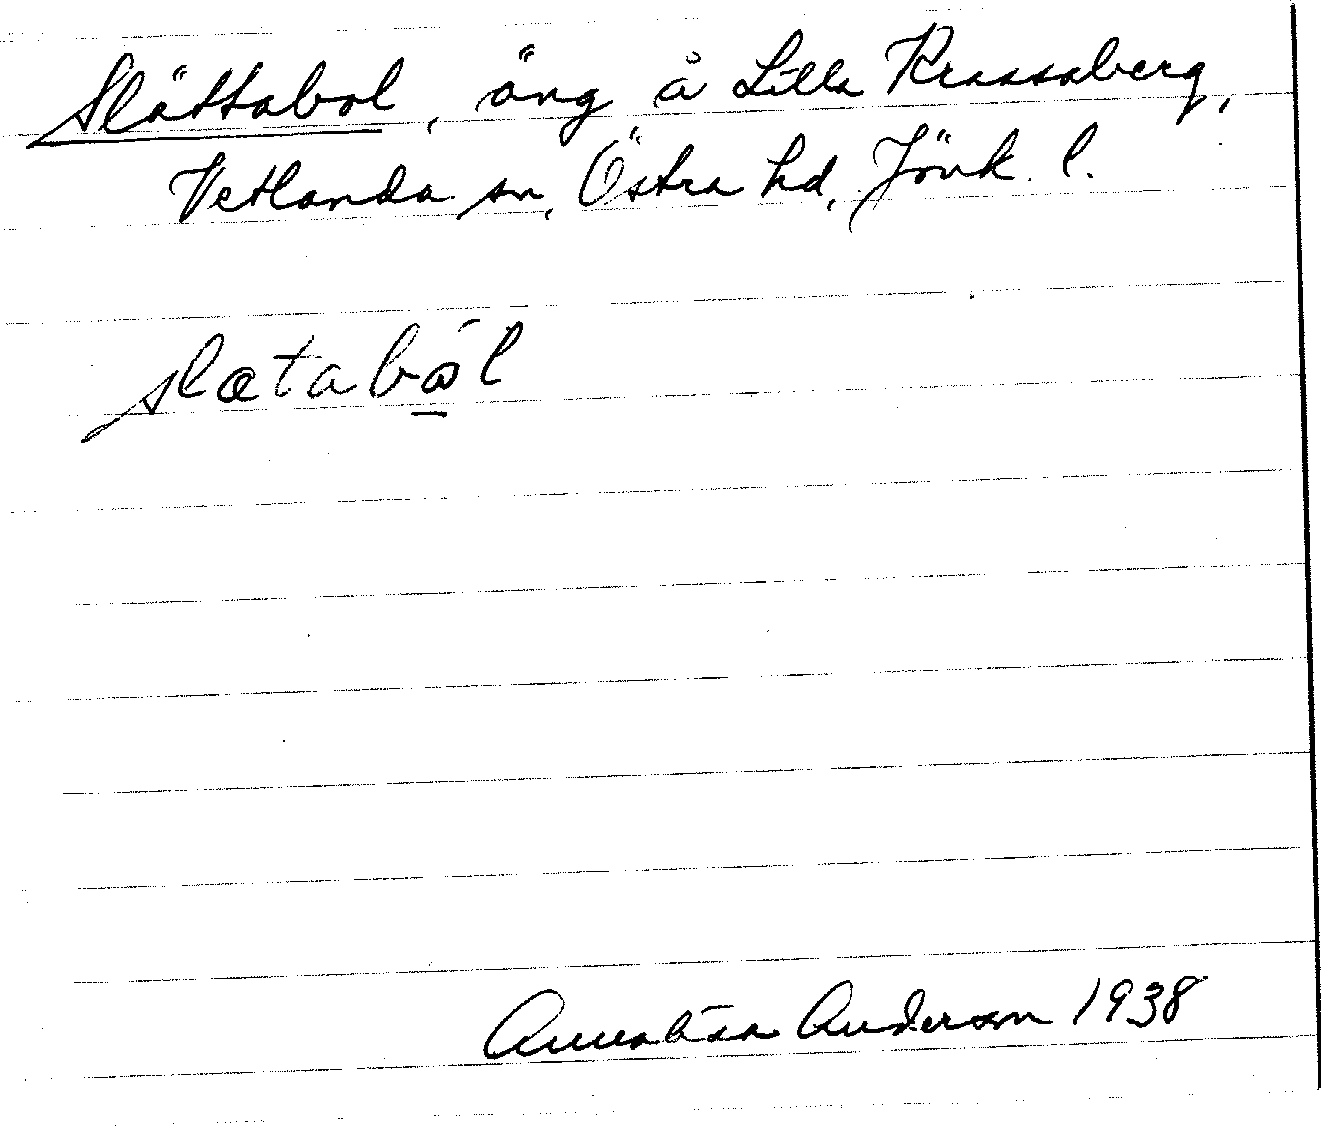 Slättabol, äng å Lilla Krassaberg,
Vetlanda sn, Östra hd, Jönk. l.
slætabol
Annalisa Anderson 1938